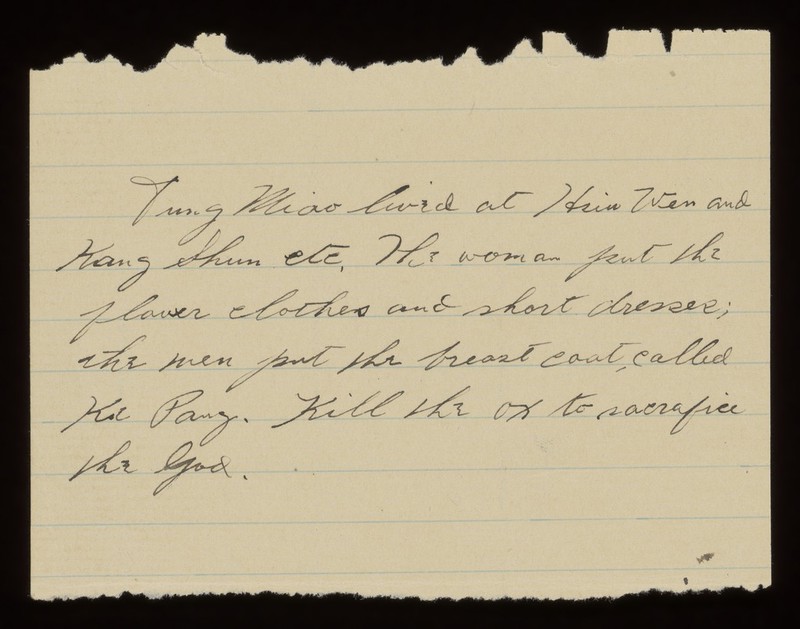 Tung Miao lived at Hsin Wen and
Kang Shun etc. The woman put the
flower clothes and short dresses;
the men put the breast coat, called
Ke Pang. Kill the ox to sacrafice
the God.